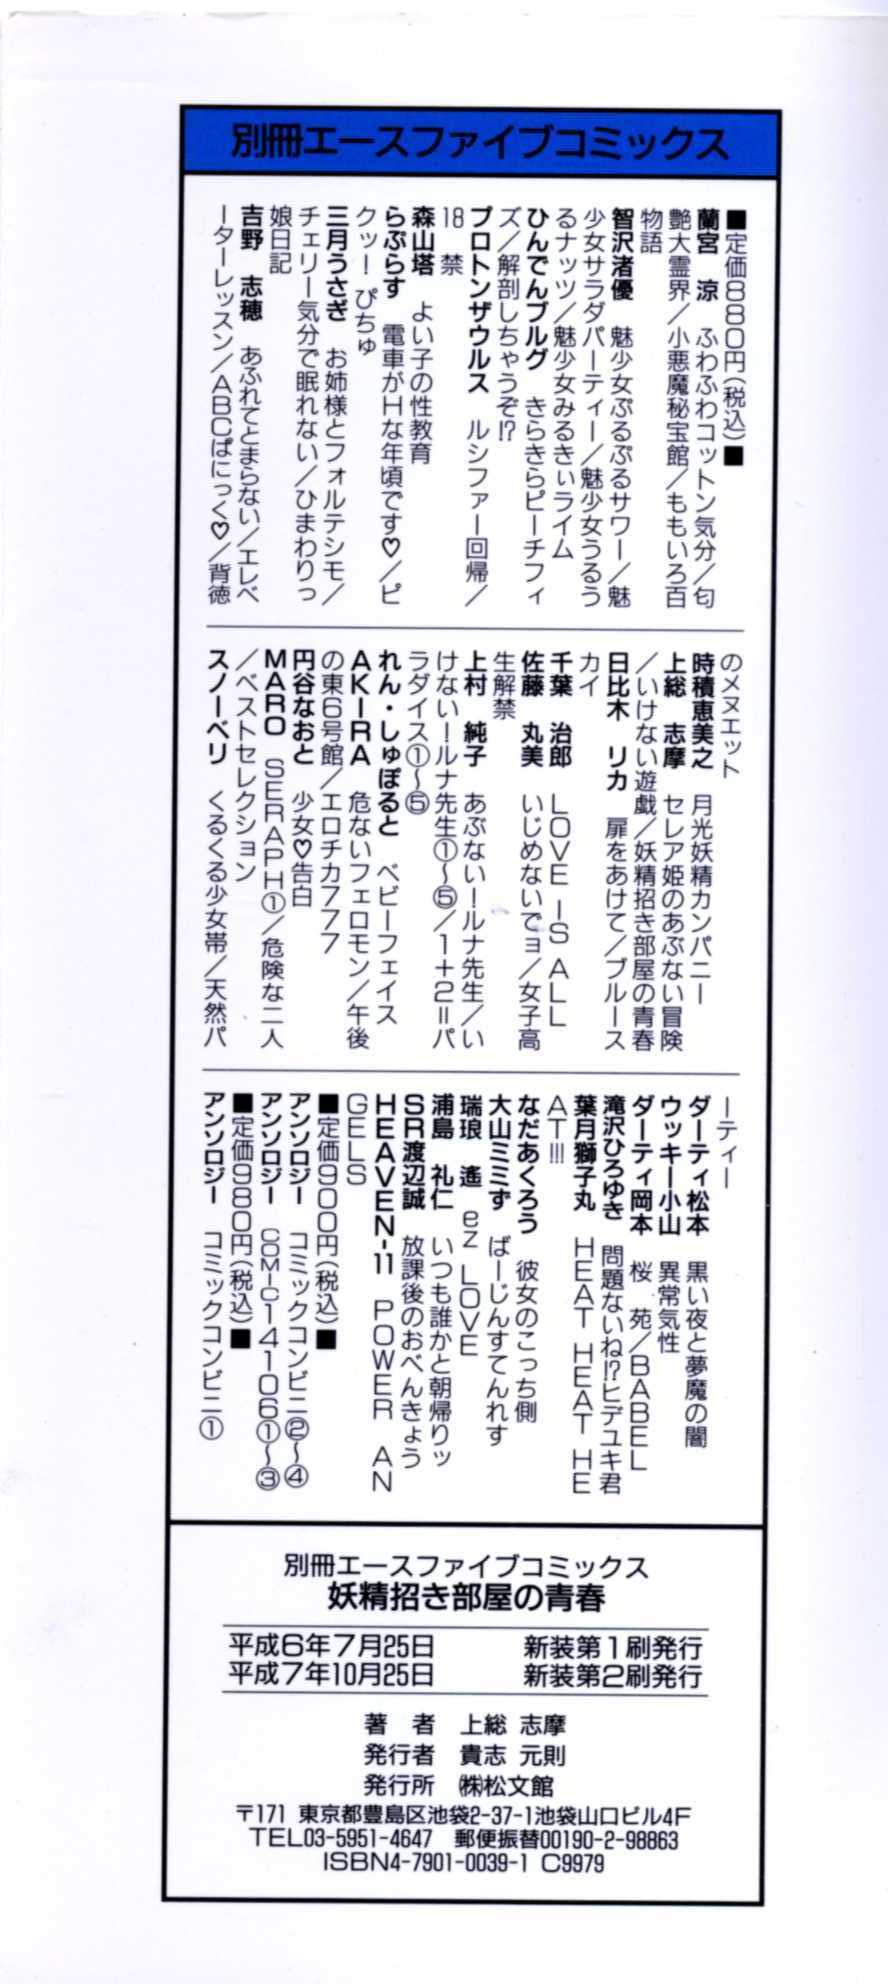 別冊エースファイブコミックス
■定価880円(税込)■
蘭宮　涼　ふわふわコットン気分／匂
艶大霊界／小悪魔秘宝館／ももいろ百
物語
智沢渚優　魅少女ぷるぷるサワー／魅
少女サラダパーティー／魅少女うるう
るナッツ／魅少女みるきぃライム
ひんでんブルグ　きらきらピーチフィ
ズ／解剖しちゃうぞ!?
プロトンザウルス　ルシファー回帰／
18　禁
森山塔　よい子の性教育
らぷらす　電車がHな年頃です♡／ピ
クッー ぴちゅ
三月うさぎ　お姉様とフォルテシモ／
チェリー気分で眠れない／ひまわりっ
娘日記
吉野　志穂　あふれてとまらない／エレベ
ーターレッスン／ABCぱにっく♡／背徳
のメヌエット
時積恵美之　月光妖精カンパニー
上総　志摩　セレア姫のあぶない冒険
／いけない遊戯／妖精招き部屋の青春
日比木　リカ　扉をあけて／ブルース
カイ
千葉　治郎　LOVE IS ALL
佐藤　丸美　いじめないでョ／女子高
生解禁
上村　純子　あぶない！ルナ先生／い
けない！ルナ先生①〜⑤／1＋2＝パ
ラダイス①〜⑤
れん・しゅぽると　ベビーフェイス
AKIRA　危ないフェロモン／午後
の東6号館／エロチカ777
円谷なおと　少女♡告白
MARO　SERAPH①／危険な二人
／ベストセレクション
スノーベリ　くるくる少女帯／天然パ
ーティー
ダーティ松本　黒い夜と夢魔の闇
ウッキー小山　異常気性
ダーティ岡本　桜　苑／BABEL
滝沢ひろゆき　問題ないね!?ヒデユキ君
葉月獅子丸　HEAT HEAT HE
AT!!!
なだあくろう　彼女のこっち側
大山ミミず　ばーじんすてんれす
瑞琅　遙　ez LOVE
浦島　礼仁　いつも誰かと朝帰りッ
SR渡辺誠　放課後のおべんきょう
HEAVEN-11　POWER　AN
GELS
■定価900円(税込)■
アンソロジー　コミックコンビニ②〜④
アンソロジー　COMIC14106①〜③
■定価980円(税込)■
アンソロジー　コミックコンビニ①
別冊エースファイブコミックス
妖精招き部屋の青春
平成6年7月25日　新装第1刷発行
平成7年10月25日　新装第2刷発行
著　者　上総 志摩
発行者　貴志 元則
発行所　㈱松文館
〒171 東京都豊島区池袋2-37-1池袋山口ビル4F
TEL03-5951-4647　郵便振替00190-2-98863
ISBN4-7901-0039-1 C9979